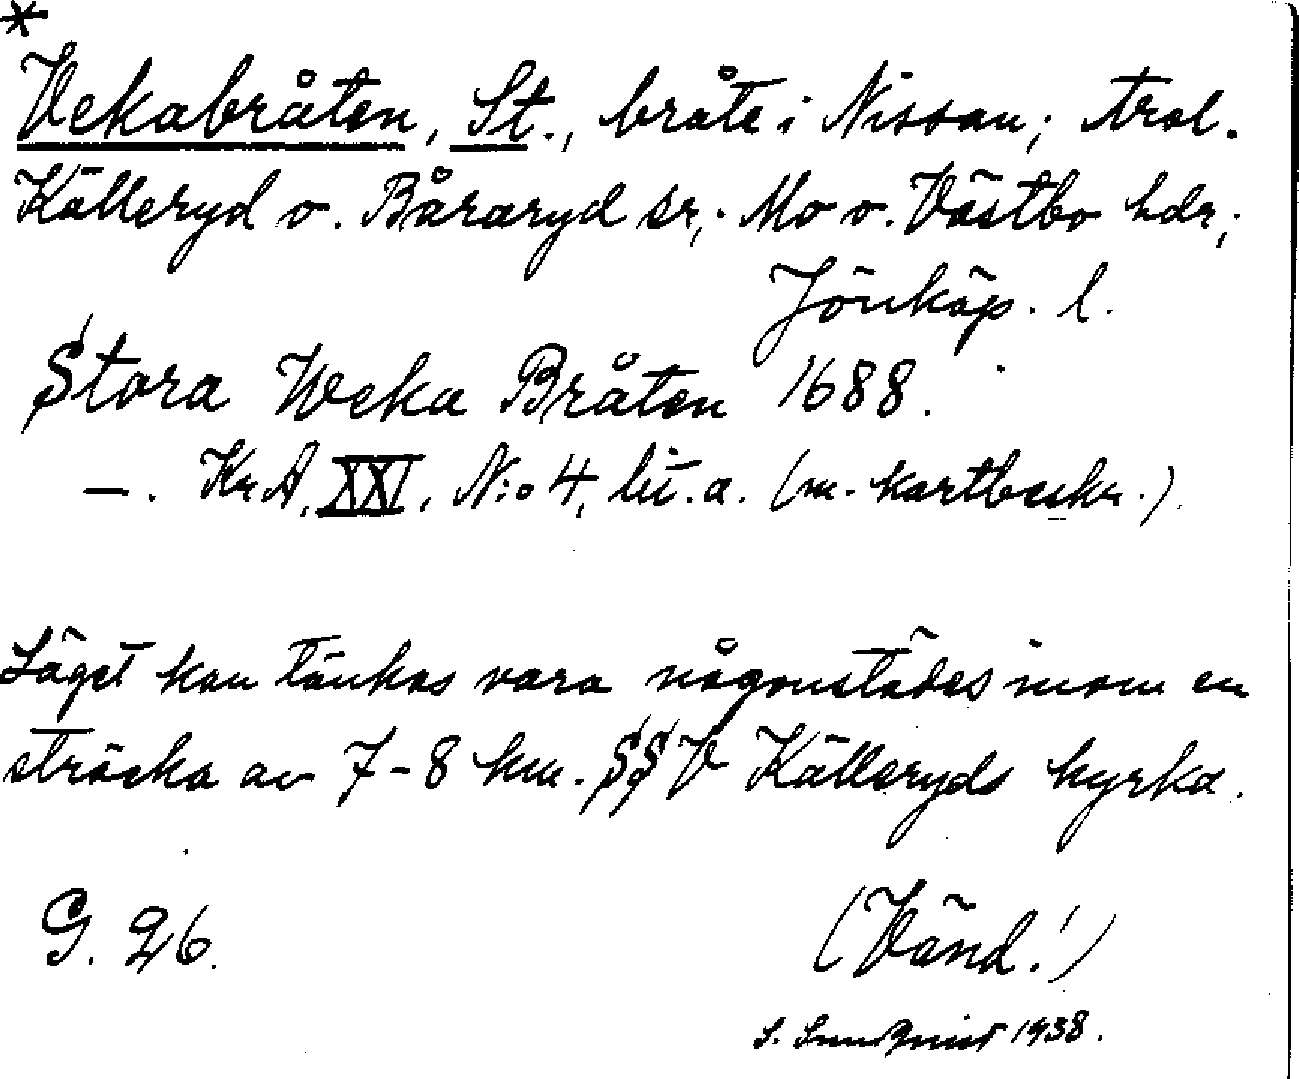 *
Vekabråten, St., bråte i Nissan; trol.
Källeryd o. Båraryd sr; Mo o. Västbo hdr;
Jönköp. l.
Stora Weka Bråten 1688.
—. KrA, XXI, N:o 4, lit. a. (m. kartbeskr.).
Läget kan tänkas vara någonstädes inom en
sträcka av 7-8 km. SSV Källeryds kyrka.
G. 26.
(Vänd!)
S. Sundquist 1938.